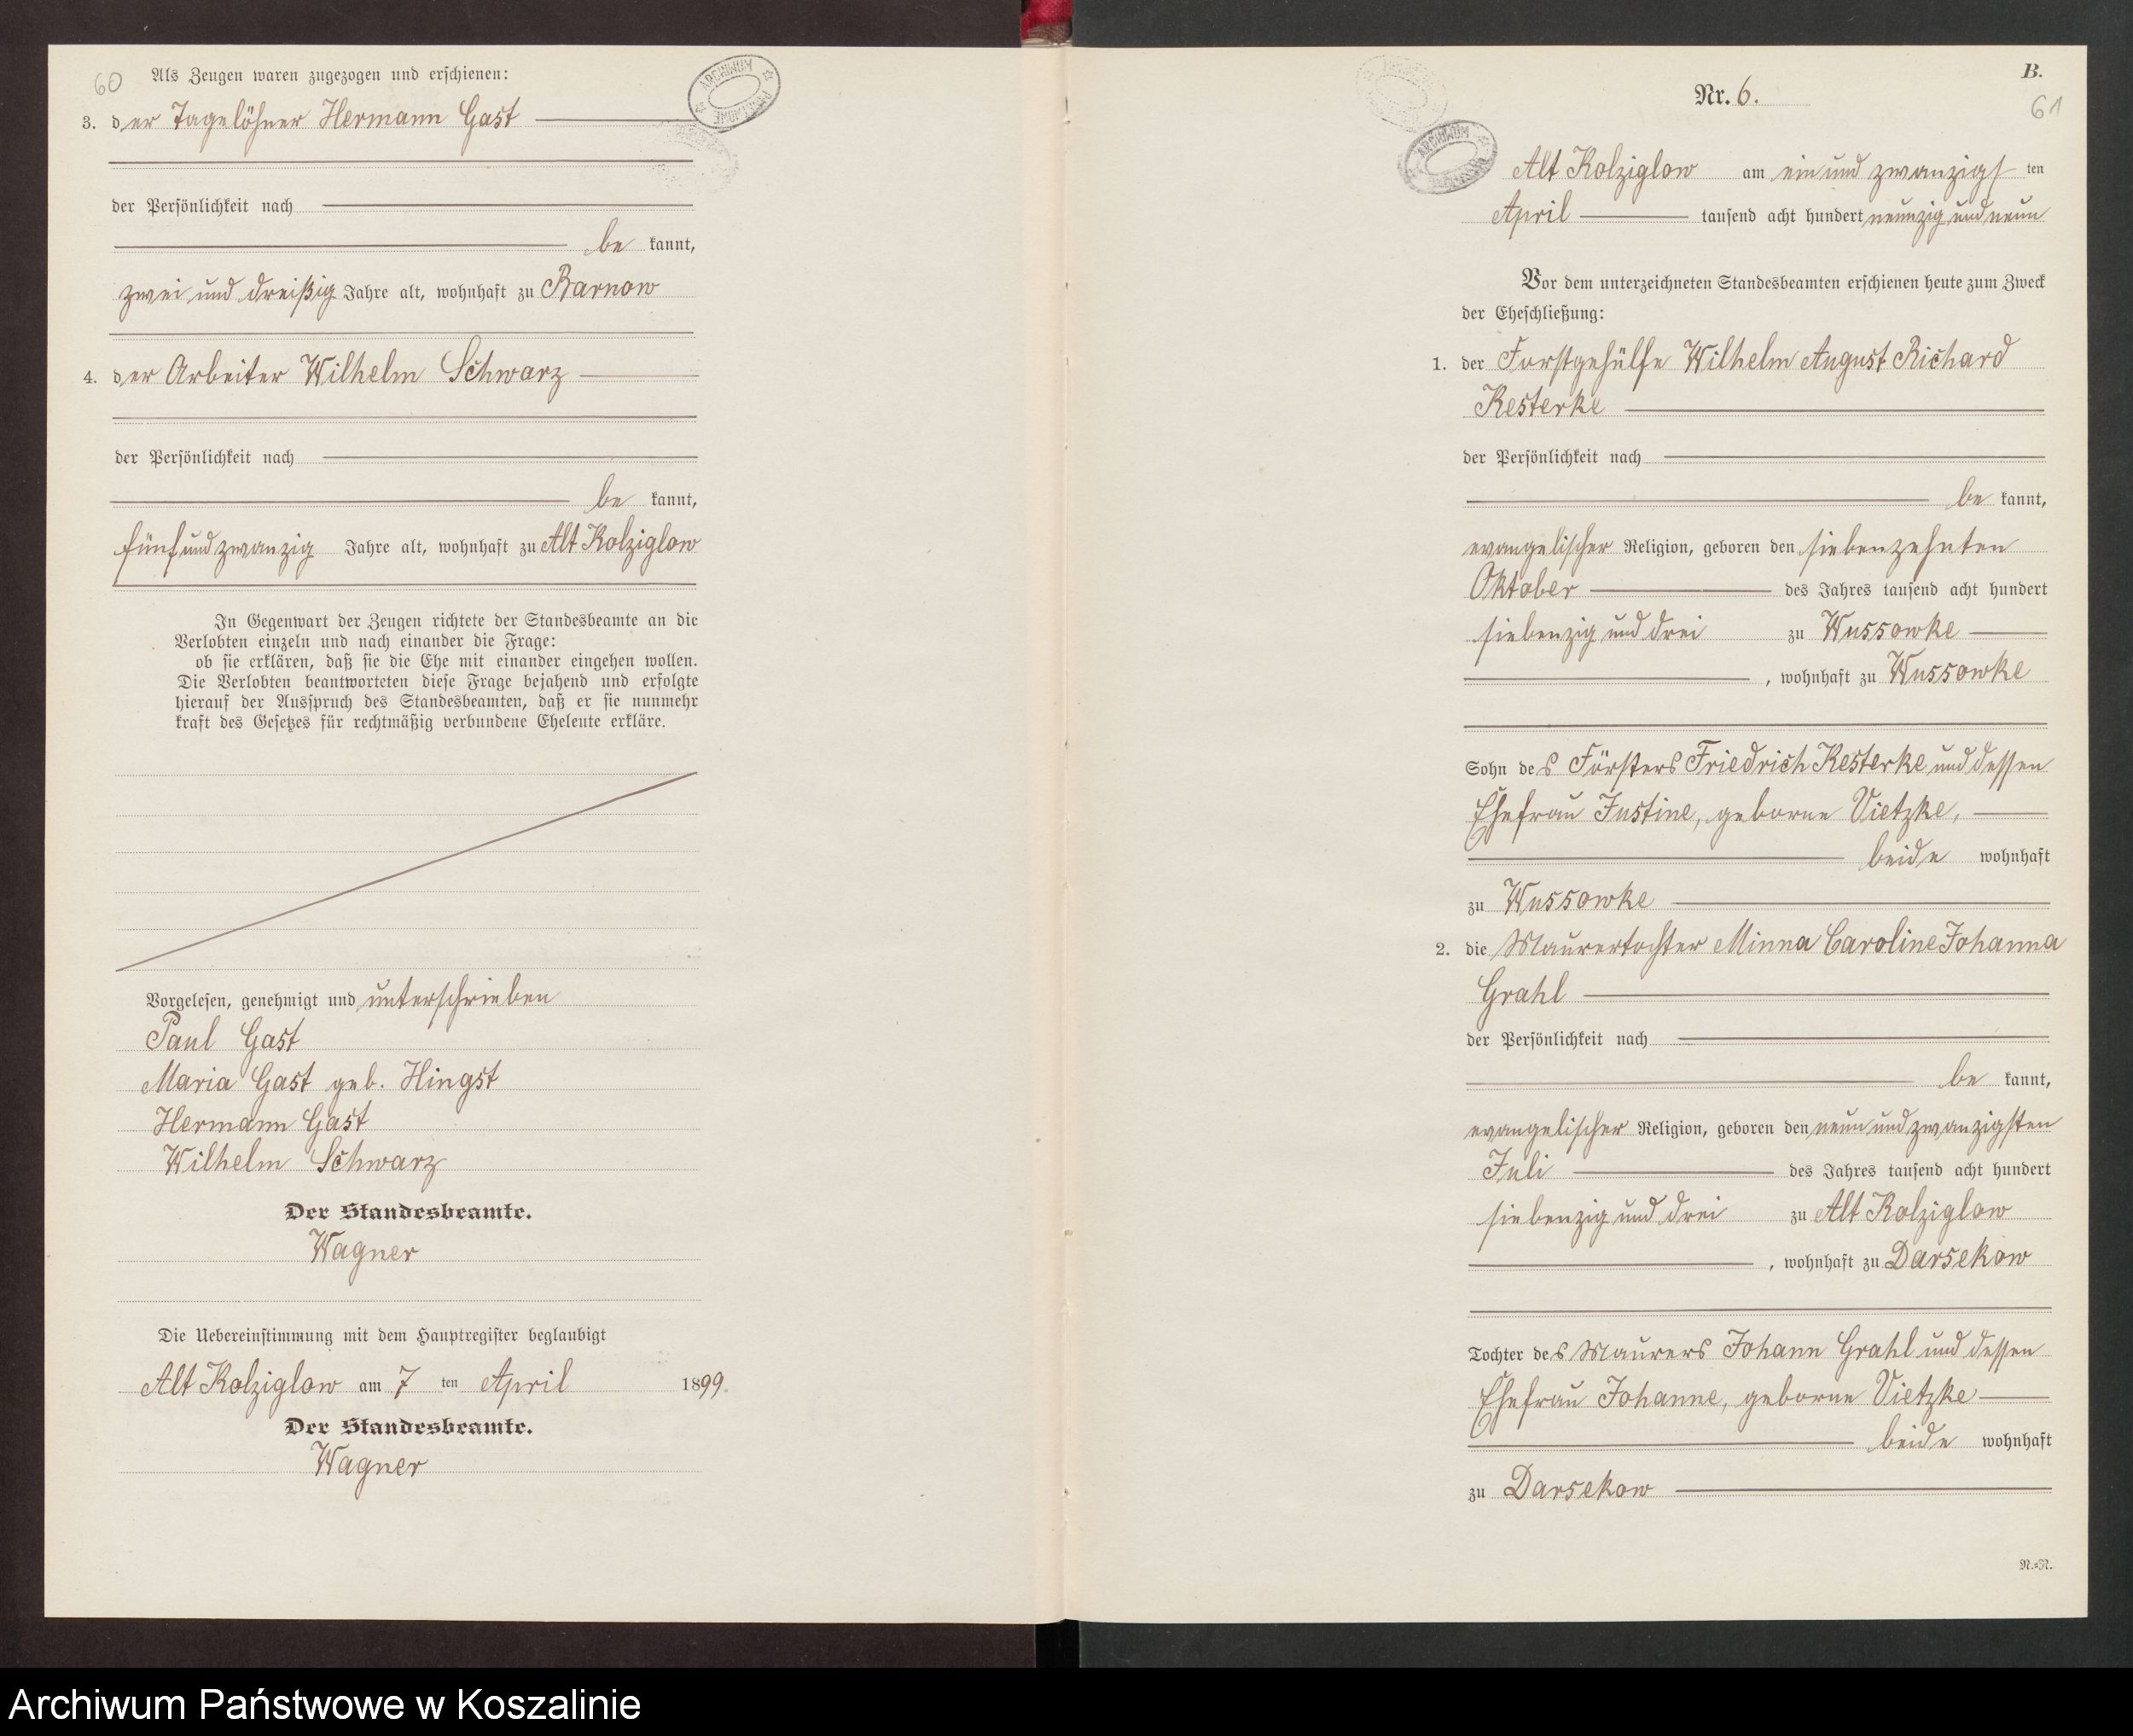 60
Als Zeugen waren zugezogen und erschienen:
3. der Tagelöhner Hermann Gast
der Persönlichkeit nach
be kannt,
zwei und dreißig Jahre alt, wohnhaft zu Barnow
4. der Arbeiter Wilhelm Schwarz
der Persönlichkeit nach
be kannt,
fünf und zwanzig Jahre alt, wohnhaft zu Alt Kolziglow
In Gegenwart der Zeugen richtete der Standesbeamte an die
Verlobten einzeln und nach einander die Frage:
ob sie erklären, daß sie die Ehe mit einander eingehen wollen.
Die Verlobten beantworteten diese Frage bejahend und erfolgte
hierauf der Ausspruch des Standesbeamten, daß er sie nunmehr
kraft des Gesetzes für rechtmäßig verbundene Eheleute erkläre.
Vorgelesen, genehmigt und unterschrieben
Paul Gast
Maria Gast geb. Hingst
Hermann Gast
Wilhelm Schwarz
Der Standesbeamte.
Wagner
Die Uebereinstimmung mit dem Hauptregister beglaubigt
Alt Kolziglow am 7 ten April 1899.
Der Standesbeamte.
Wagner
ARCHIWUM
B.
Nr. 6.
61
ARCHIWUM
Alt Kolziglow am ein und zwanzigs ten
April tausend acht hundert neunzig und neun
Vor dem unterzeichneten Standesbeamten erschienen heute zum Zweck
der Eheschließung:
1. der Forstgehülfe Wilhelm August Richard
Kesterke
der Persönlichkeit nach
be kannt,
evangelischer Religion, geboren den siebenzehnten
Oktober des Jahres tausend acht hundert
siebenzig und drei zu Wussowke
, wohnhaft zu Wussowke
Sohn des Försters Friedrich Kesterke und dessen
Ehefrau Justine, geborne Vietzke,
beide wohnhaft
zu Wussowke
2. die Maurertochter Minna Caroline Johanna
Grahl
der Persönlichkeit nach
be kannt,
evangelischer Religion, geboren den neun und zwanzigsten
Juli des Jahres tausend acht hundert
siebenzig und drei zu Alt Kolziglow
, wohnhaft zu Darsekow
Tochter des Maurers Johann Grahl und dessen
Ehefrau Johanne, geborne Vietzke
beide wohnhaft
zu Darsekow
N.=N.
Archiwum Państwowe w Koszalinie